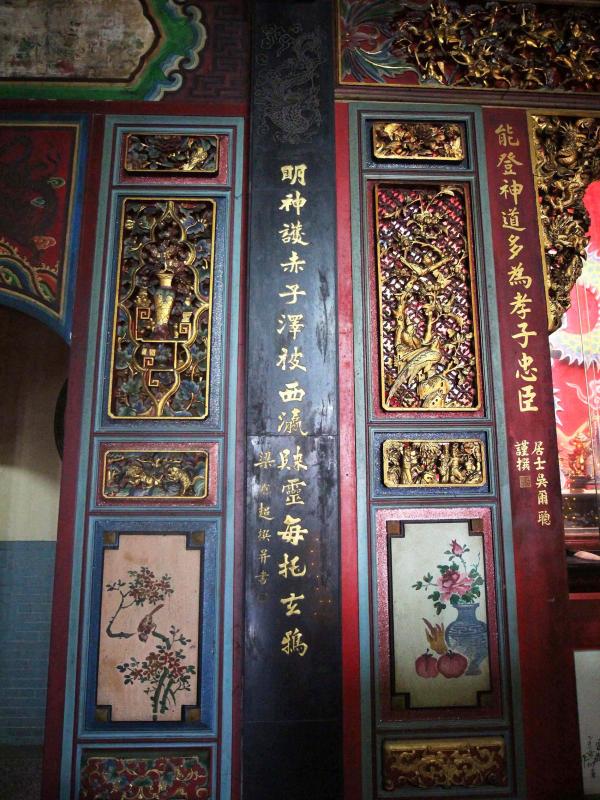 能登神道多為孝子忠臣
居士吳爾聰
謹撰
明神護赤子澤被西瀛靈每托玄鴉
梁超撰并書